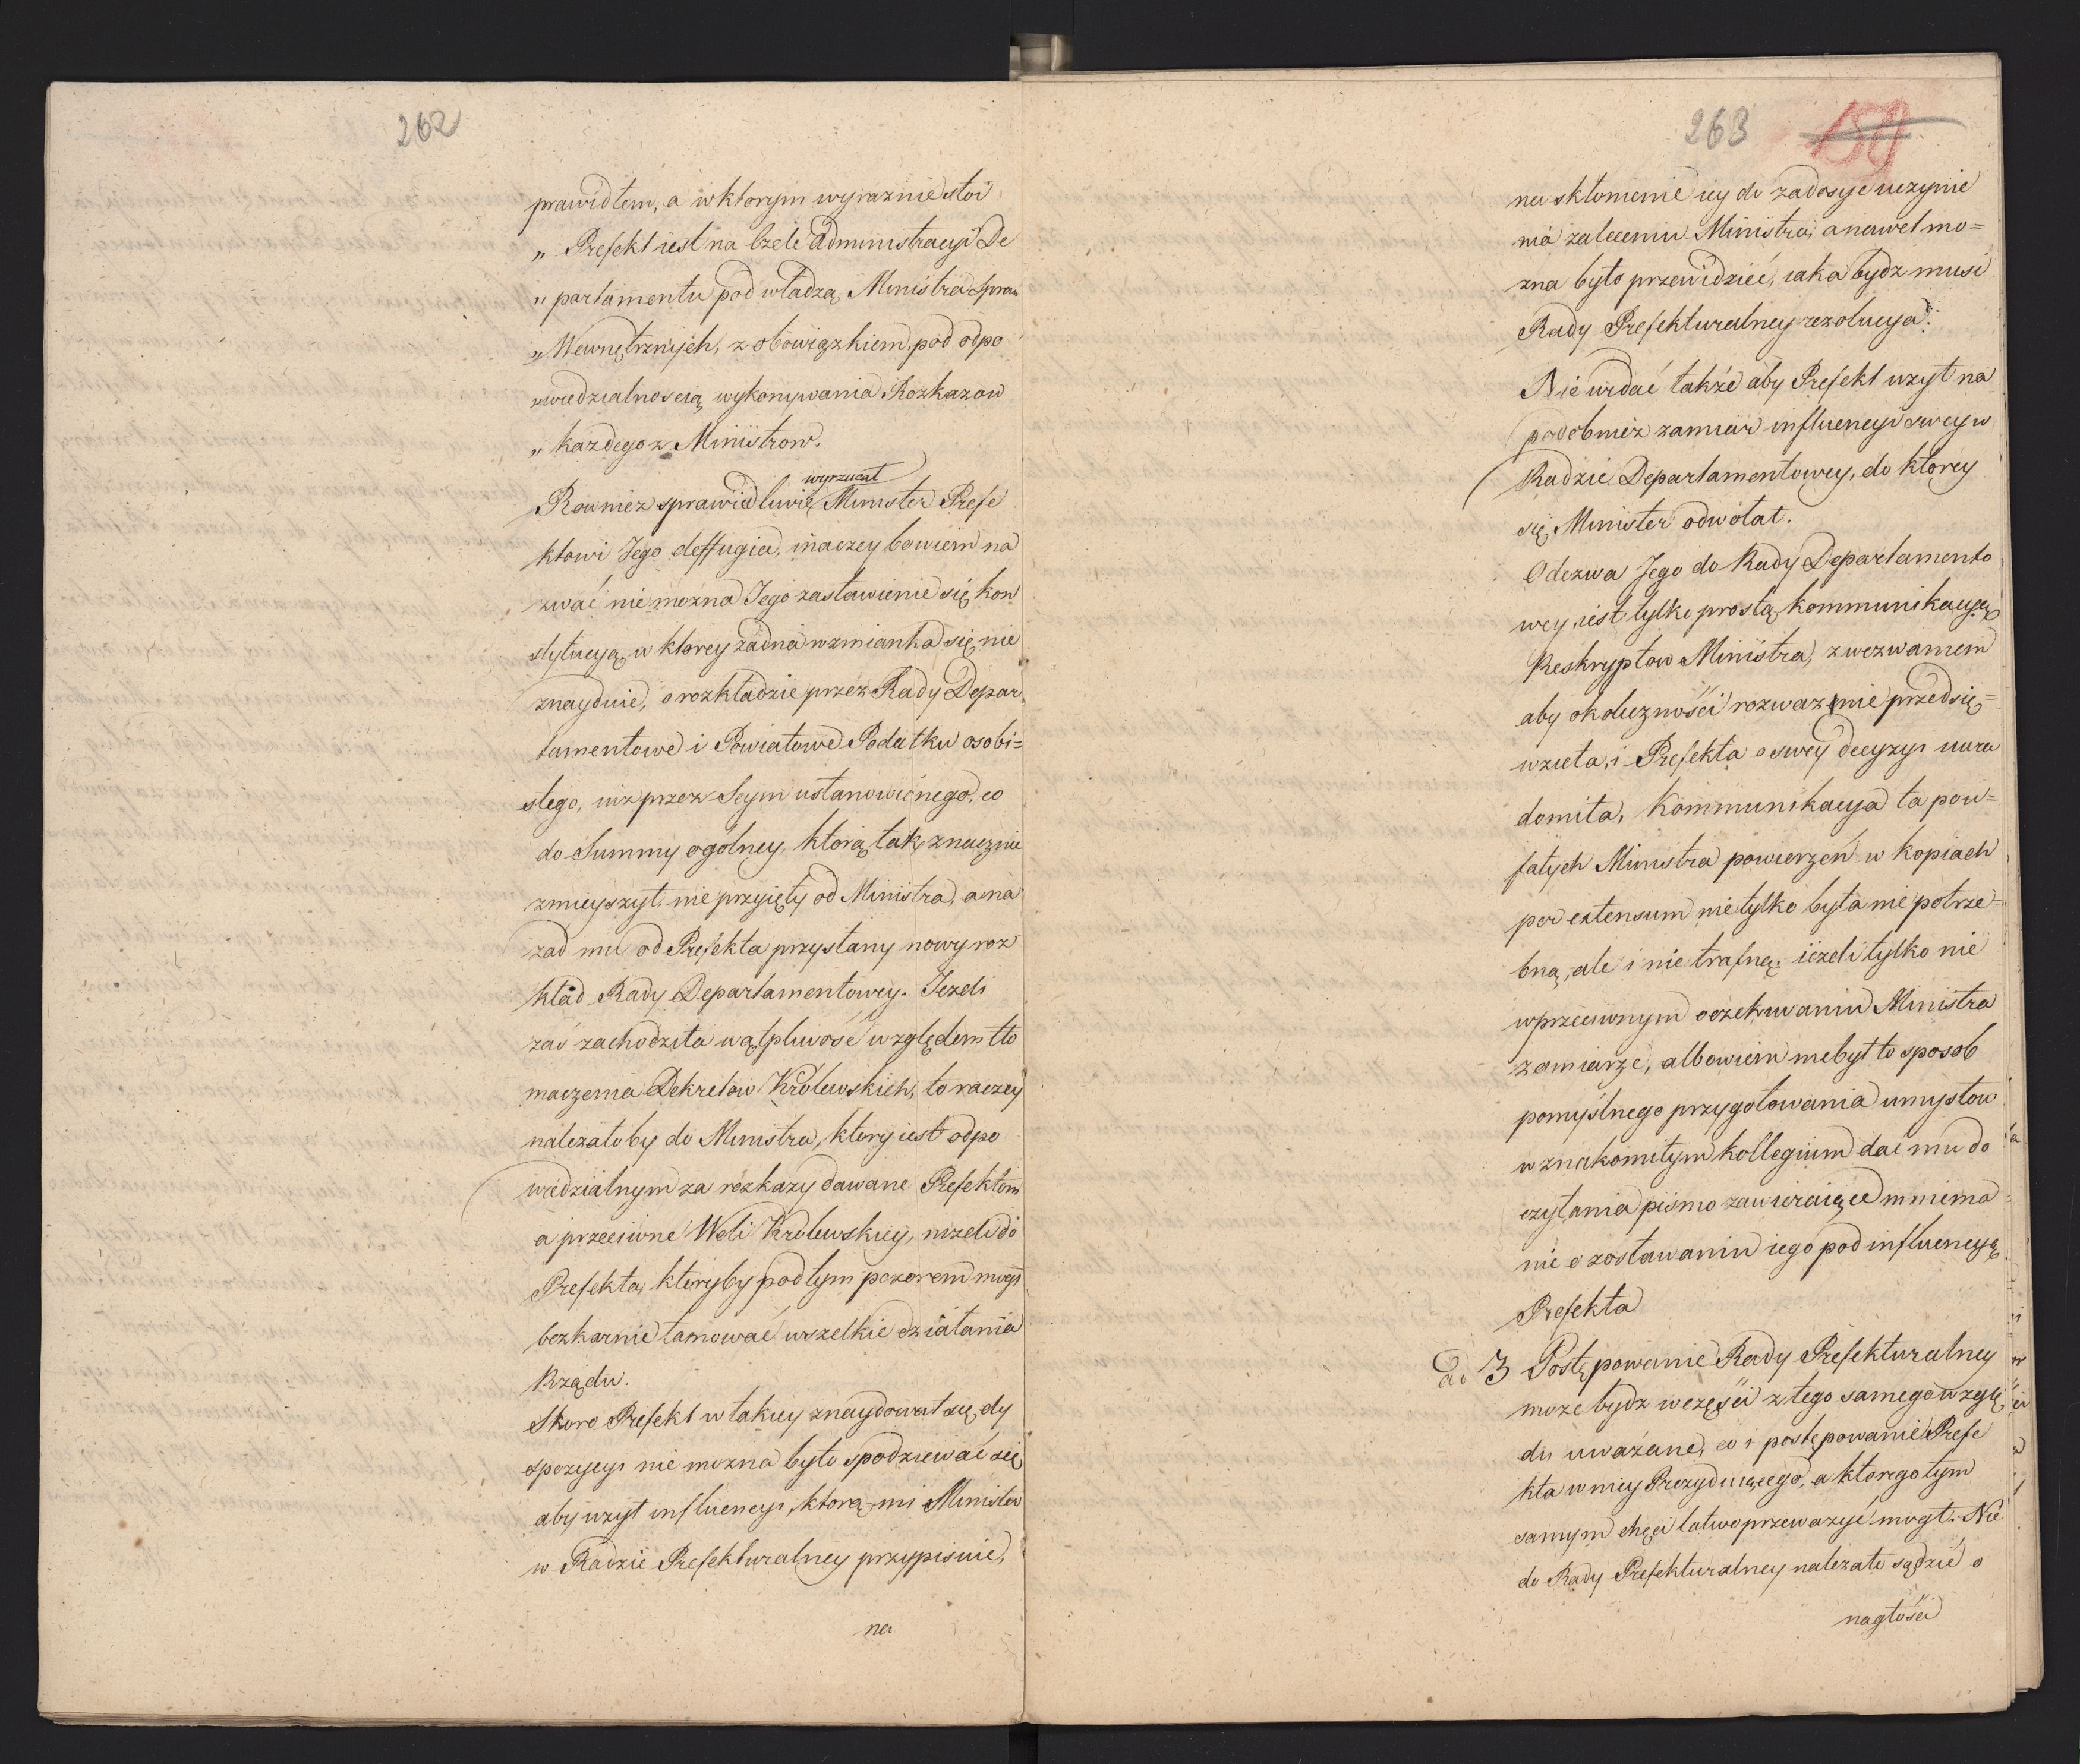 262
prawidłem, a w ktorym wyraznie stoi
„ Prefekt iest na Czele Administracyi De
„ partamentu pod władzą Ministra Spraw
„ Wewnętrznych, z obowiązkiem pod odpo
„ wiedzialnoscią wykonywania Rozkazow
„ kazdego z Ministrow.
wyrzucał
Rownież sprawiedliwie Minister Prefe
ktowi Jego deffugia, inaczey bowiem na
zwać nie można Jego zastawienie się kon
stytucyą, w ktorey żadna wzmianka się nie
znayduie, o rozkładzie przez Rady Depar
tamentowe i Powiatowe Podatku osobi=
stego, iuz przez Seym ustanowionego, co
do Summy ogólney, ktorą tak znacznie
zmieyszył nie przyięty od Ministra, a na
zad mu od Prefekta przysłany nowy roz
kład Rady Departamentowey. Jezeli
zaś zachodziła wątpliwość względem tło
maczenia Dekretow Królewskich, to raczey
należałoby do Ministra, ktory iest odpo
wiedzialnym za rozkazy dawane Prefektom
a przeciwne Woli Królewskiey, niżeli do
Prefekta, ktoryby pod tym pozorem mogł
bezkarnie tamować wszelkie działania
Rządu.
Skoro Prefekt w takiey znaydował się dy
spozycyi nie mozna było spodziewać się
aby użył influencyi, ktorą mi Minister
w Radzie Prefekturalney przypisuie,
na
263 159
na skłonienie iey do zadosyc uczynie
nia zaleceniu Ministra, a nawet mo=
zna było przewidzieć, iaka bydz musi
Rady Prefekturalney rezolucya.
Nie widać także aby Prefekt użył na
podobnież zamiar influencyi swey w
Radzie Departamentowey, do ktorey
się Minister odwołał.
Odezwa Jego do Rady Departamento
wey, iest tylko prostą kommunikacyą
Reskryptow Ministra, z wezwaniem
aby okoliczności rozważnie przedsię=
wzieła, i Prefekta o swey decyzyi uwia
domiła, Kommunikacya ta pou=
fałych Ministra powierzeń w kopiach
per extensum nie tylko była nie potrze=
bną, ale i nie trafną, ieżeli tylko nie
w przeciwnym oczekiwaniu Ministra
zamiarze, albowiem nie był to sposob
pomyślnego przygotowania umysłow
w znakomitym kollegium dać mu do
czytania pismo zawieraiące mniema=
nie o zostawaniu iego pod influencyą
Prefekta
ad 3 Postępowanie Rady Prefekturalney
może bydz w części z tego samego wzglę
du uważane, co i postępowanie Prefe
kta w niey Prezyduiącego, a ktorego tym
samym chęci łatwo przeważyć mogł. Nie
do Rady Prefekturalney należało sądzić o
nagłości